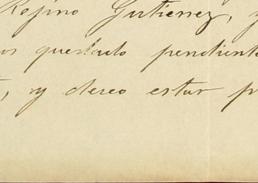 Rojino Gutierrez, y
os quedado pendiente
, y deseo estar p